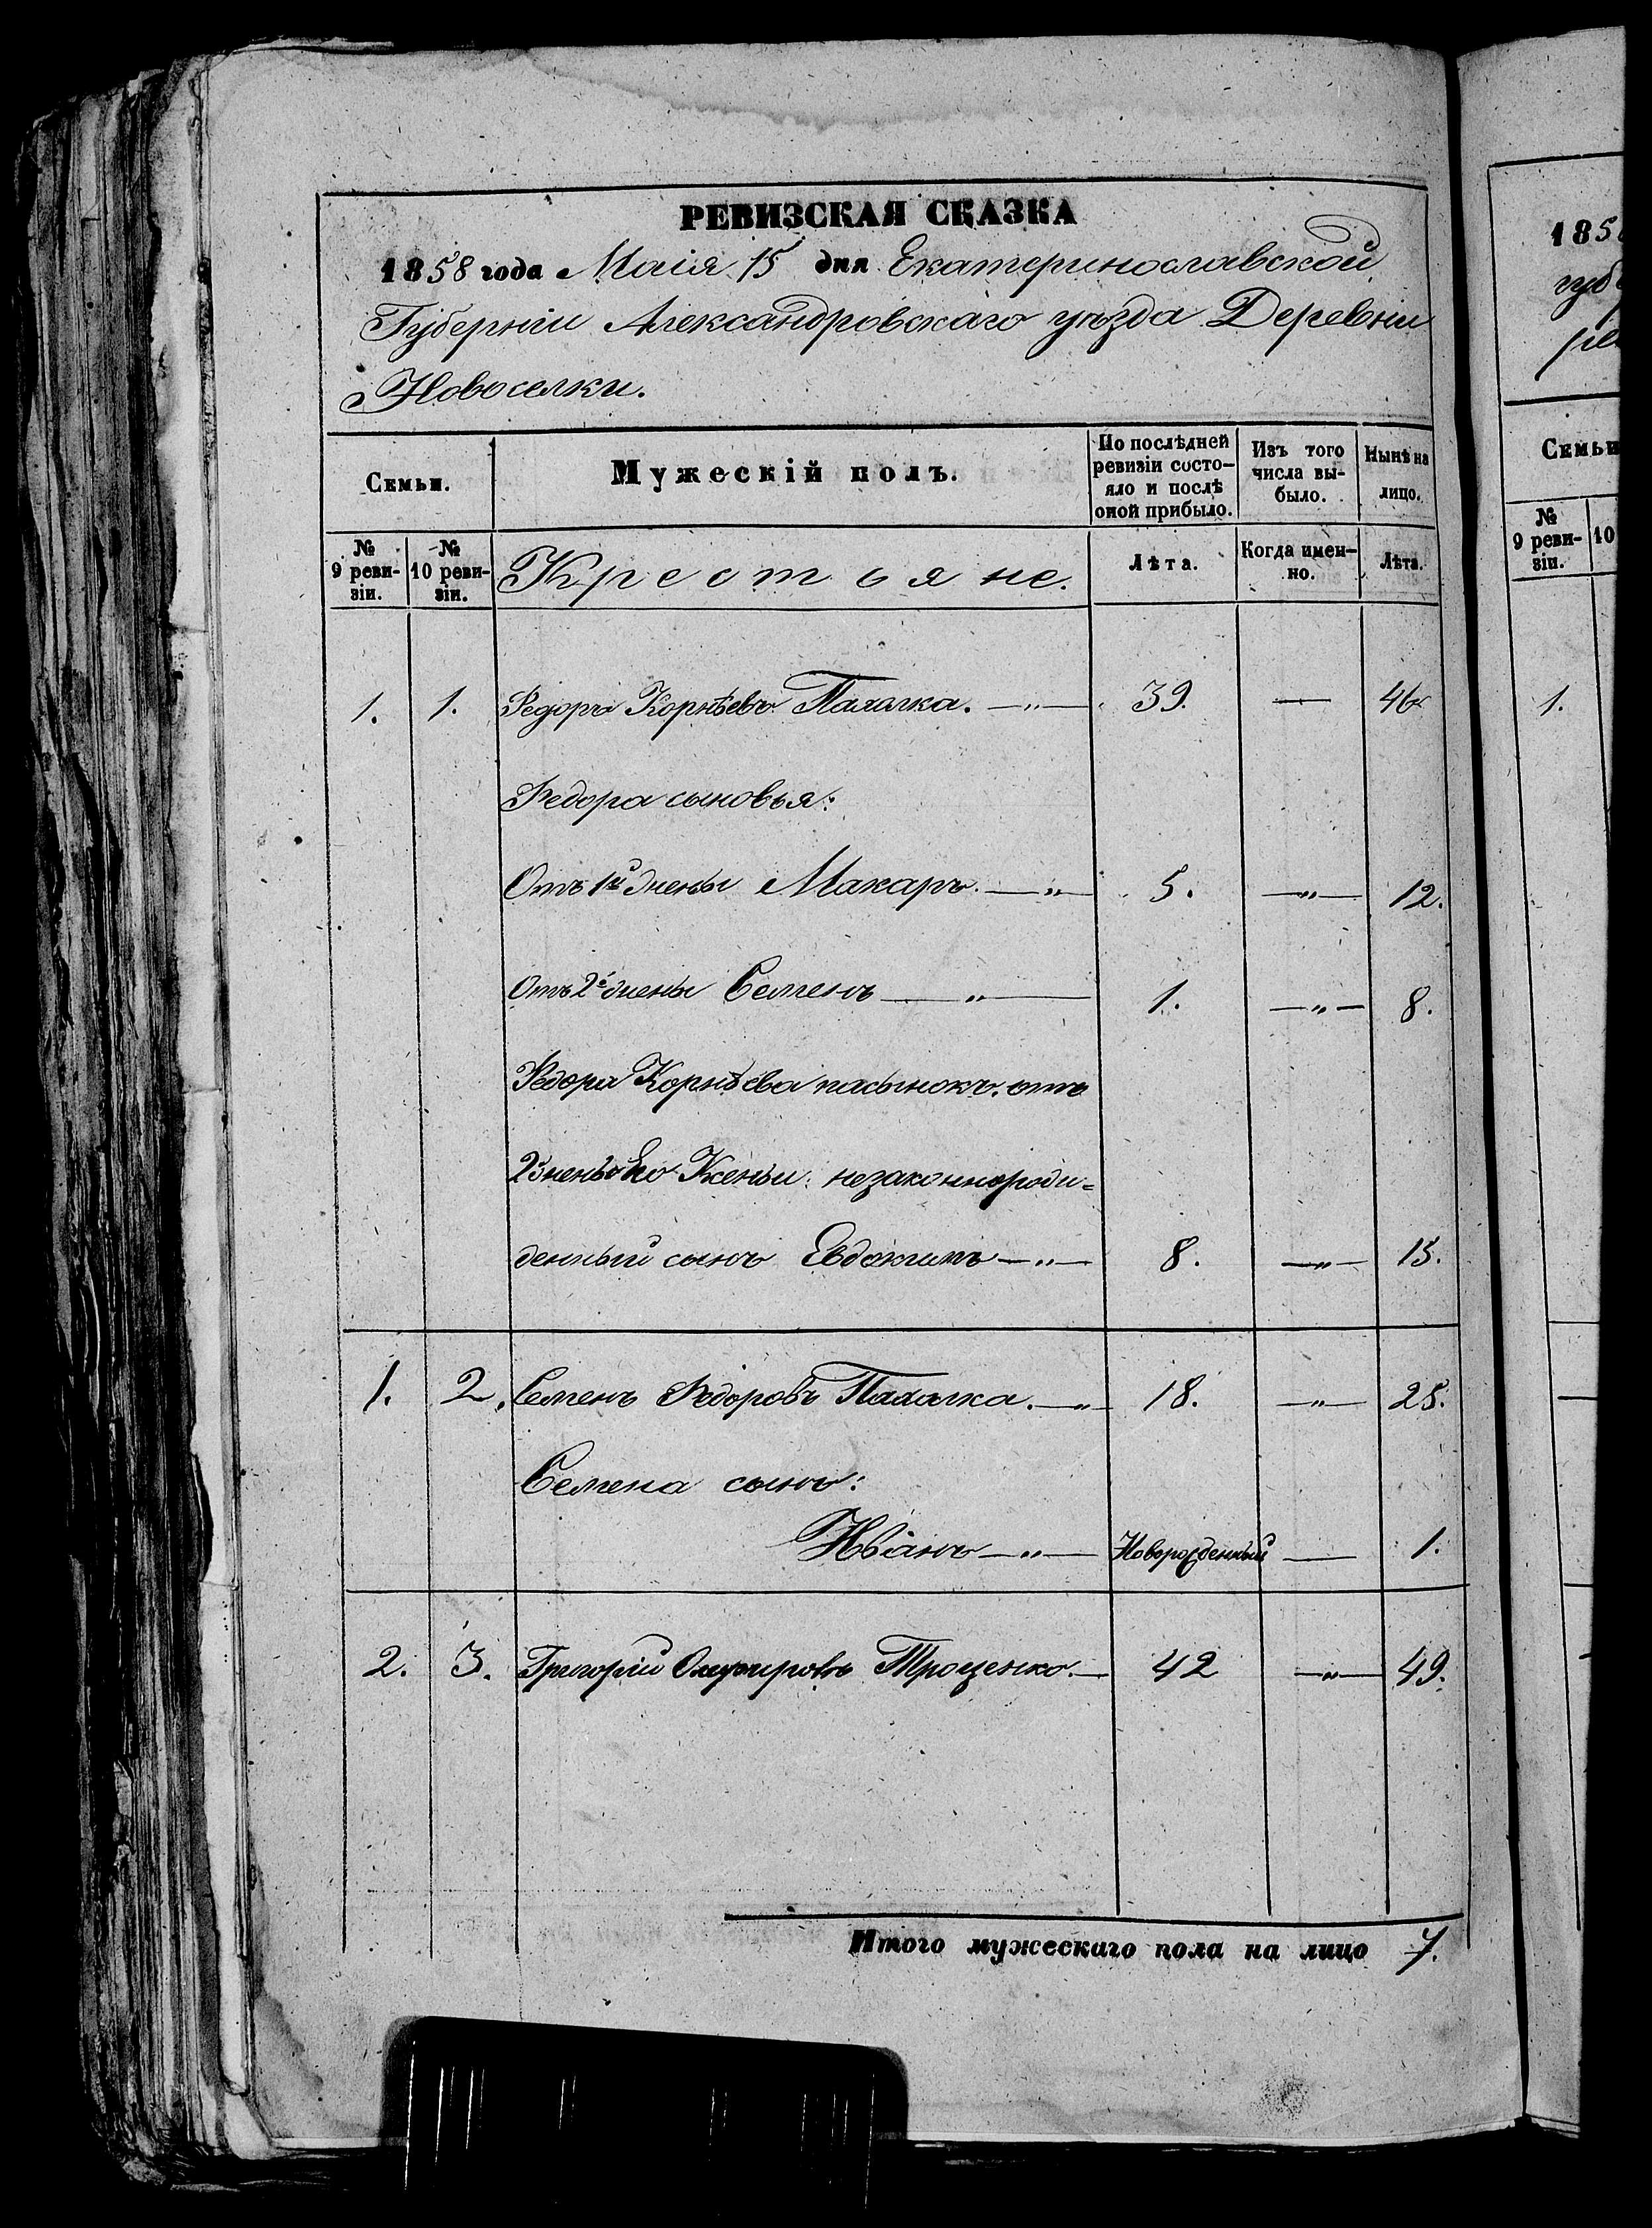 РЕВИЗСКАЯ СКАЗКА
1858 года Маія 15 дня Екатеринославской
Губерніи Александровскаго уѣзда Деревни
Новоселки.
Семьи. Мужескій полъ. По послѣдней ревизіи состо- яло и послѣ оной прибыло. Изъ того числа вы- было. Нынѣ на лицо.
№ 9 реви- зіи. № 10 реви- зіи. Крестьяне. Лѣта. Когда имен- но. Лѣта.
1. 1. Федоръ Корнѣевъ Палалка. — " — 39. — 46
Федора сыновья:
Отъ 1й жены Макаръ. — " — 5. — " — 12.
Отъ 2й жены Семенъ — " — 1. — " — 8.
Федора Корнѣева пасынокъ отъ
2й жены его Ксеньи: незаконнорож=
денный сынъ Евдокимъ — " — 8. — " — 15.
1. 2. Семенъ Федоровъ Палалка. — " — 18. — " — 25.
Семена сынъ:
Иванъ — " — Новорожденный — 1.
2. 3. Григорій Трощенко. — 42 — " — 49.
Итого мужескаго пола на лицо 7.
185
губ
1.
Семьи
№ 9 реви- зіи. 10